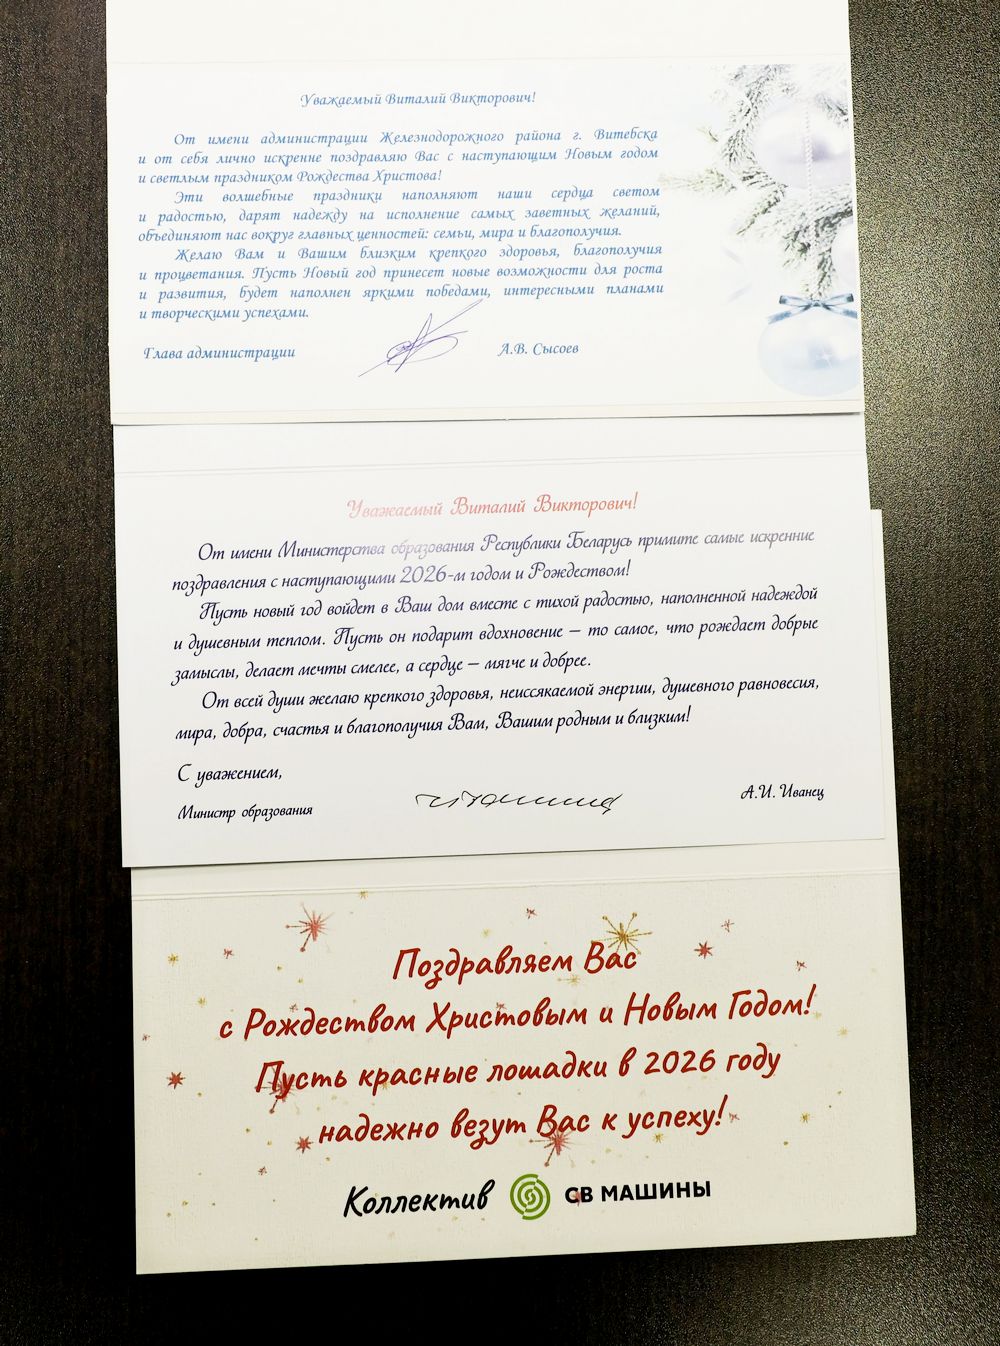 Уважаемый Виталий Викторович!
От имени администрации Железнодорожного района г. Витебска
и от себя лично искренне поздравляю Вас с наступающим Новым годом
и светлым праздником Рождества Христова!
Эти волшебные праздники наполняют наши сердца светом
и радостью, дарят надежду на исполнение самых заветных желаний,
объединяют нас вокруг главных ценностей: семьи, мира и благополучия.
Желаю Вам и Вашим близким крепкого здоровья, благополучия
и процветания. Пусть Новый год принесет новые возможности для роста
и развития, будет наполнен яркими победами, интересными планами
и творческими успехами.
Глава администрации А.В. Сысоев
Уважаемый Виталий Викторович!
От имени Министерства образования Республики Беларусь примите самые искренние
поздравления с наступающими 2026-м годом и Рождеством!
Пусть новый год войдет в Ваш дом вместе с тихой радостью, наполненной надеждой
и душевным теплом. Пусть он подарит вдохновение – то самое, что рождает добрые
замыслы, делает мечты смелее, а сердце – мягче и добрее.
От всей души желаю крепкого здоровья, неиссякаемой энергии, душевного равновесия,
мира, добра, счастья и благополучия Вам, Вашим родным и близким!
С уважением,
Министр образования А.И. Иванец
Поздравляем Вас
с Рождеством Христовым и Новым Годом!
Пусть красные лошадки в 2026 году
надежно везут Вас к успеху!
Коллектив СВ МАШИНЫ